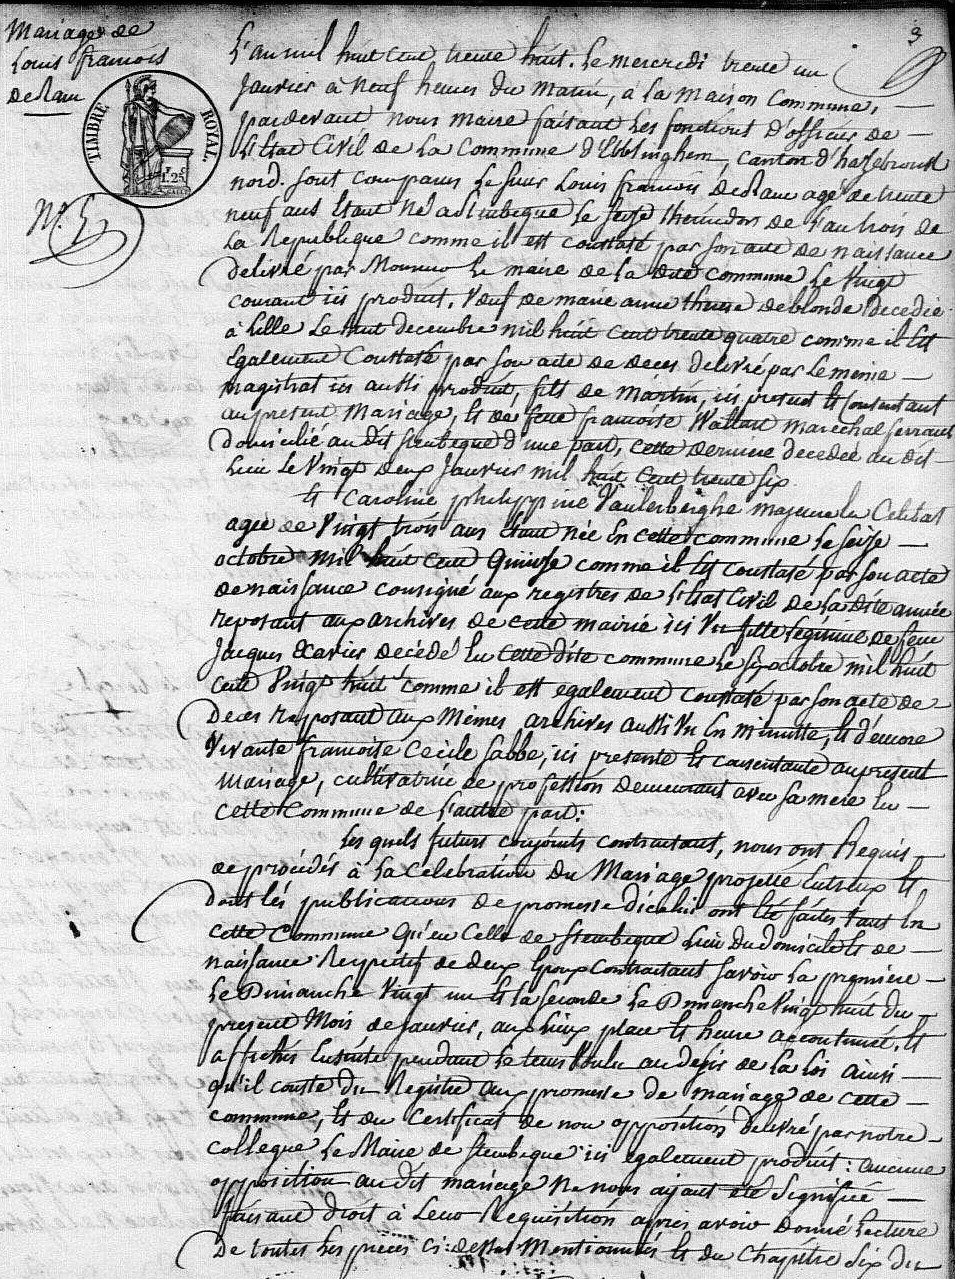 Mariage de
Louis francois
deRam
TIMBRE ROYAL.
1f 25c
N° 5
3
L'an mil huit cent trente huit. Le mercredi trente un
Janvier à Neuf heures du Matin, a La Maison Commune,
pardevant nous maire faisant Les fonctions d'officier de
L'Etat Civil de La Commune d'Ebblinghem, canton d'hazebrouck
nord. sont comparus Le sieur Louis francois deRam agé de trente
neuf ans Etant Né a Steenbeque Le Seize thermidor de L'an trois de
La Republique comme il est constaté par son acte de naissance
delivré par Monsieur Le maire de La dite commune Le Vingt
courant ici produit. Veuf de marie anne deblonde decedée
à Lille Le huit decembre mil huit cent trente quatre comme il Est
Egalement Constaté par son acte de deces delivré par Le même
magistrat ici aussi produit, fils de martin, ici present Et Consentant
au present Mariage, Et de feue francoise Wallart marechal ferrant
domicilié au dit steenbeque d'une part, cette derniere decedée au dit
Lieu Le Vingt deux Janvier mil huit Cent trente six.
Et Caroline philippine Vaulerberghe majeure Celibat
agée de Vingt trois ans Etant née En cette commune Le seize
octobre mil huit cent Quinze comme il Est constaté par son acte
de naissance consigné aux registres de L'Etat Civil de La dite année
reposant aux archives de cette mairie ici Vu fille Legitime de feu
Jacques Xavier decédé En cette dite commune Le six octobre mil huit
cent Vingt huit comme il est egalement constaté par son acte de
Deces reposant aux Mêmes archives aussi Vu En minutte, Et d'encore
Vivante francoise Cecile Sabbe, ici presente Et consentante au present
Mariage, cultivatrice de profession demeurant avec sa mere En
cette Commune de L'autre part:
Les quels futurs conjoints contractant, nous ont Requis
de procédés à La Celebration du Mariage projetté Entreux Et
dont Les publications de promesse d'icelui ont Eté faites tant En
cette Commune Qu'en Celle de Steenbeque Lieu du domicile Et de
naissance Respectif de deux Epoux Contractant savoir La premiere
Le Dimanche Vingt un Et La Seconde Le Dimanche Vingt huit du
present Mois de Janvier, aux Lieux place Et heure accoutumé, Et
affichés Ensuite pendant Le tems Voulu au desir de La Loi ainsi
qu'il conste du Registre aux promesse de mariage de cette
commune, Et du Certificat de non opposition delivré par notre
collegue Le Maire de Steenbeque ici egalement produit: aucune
opposition au dit mariage Ne nous ayant eté Signifié
faisant droit à Leur Requisition apres avoir Donné Lecture
De toutes Les pieces ci-dessus Mentionnées Et du Chapitre Six du